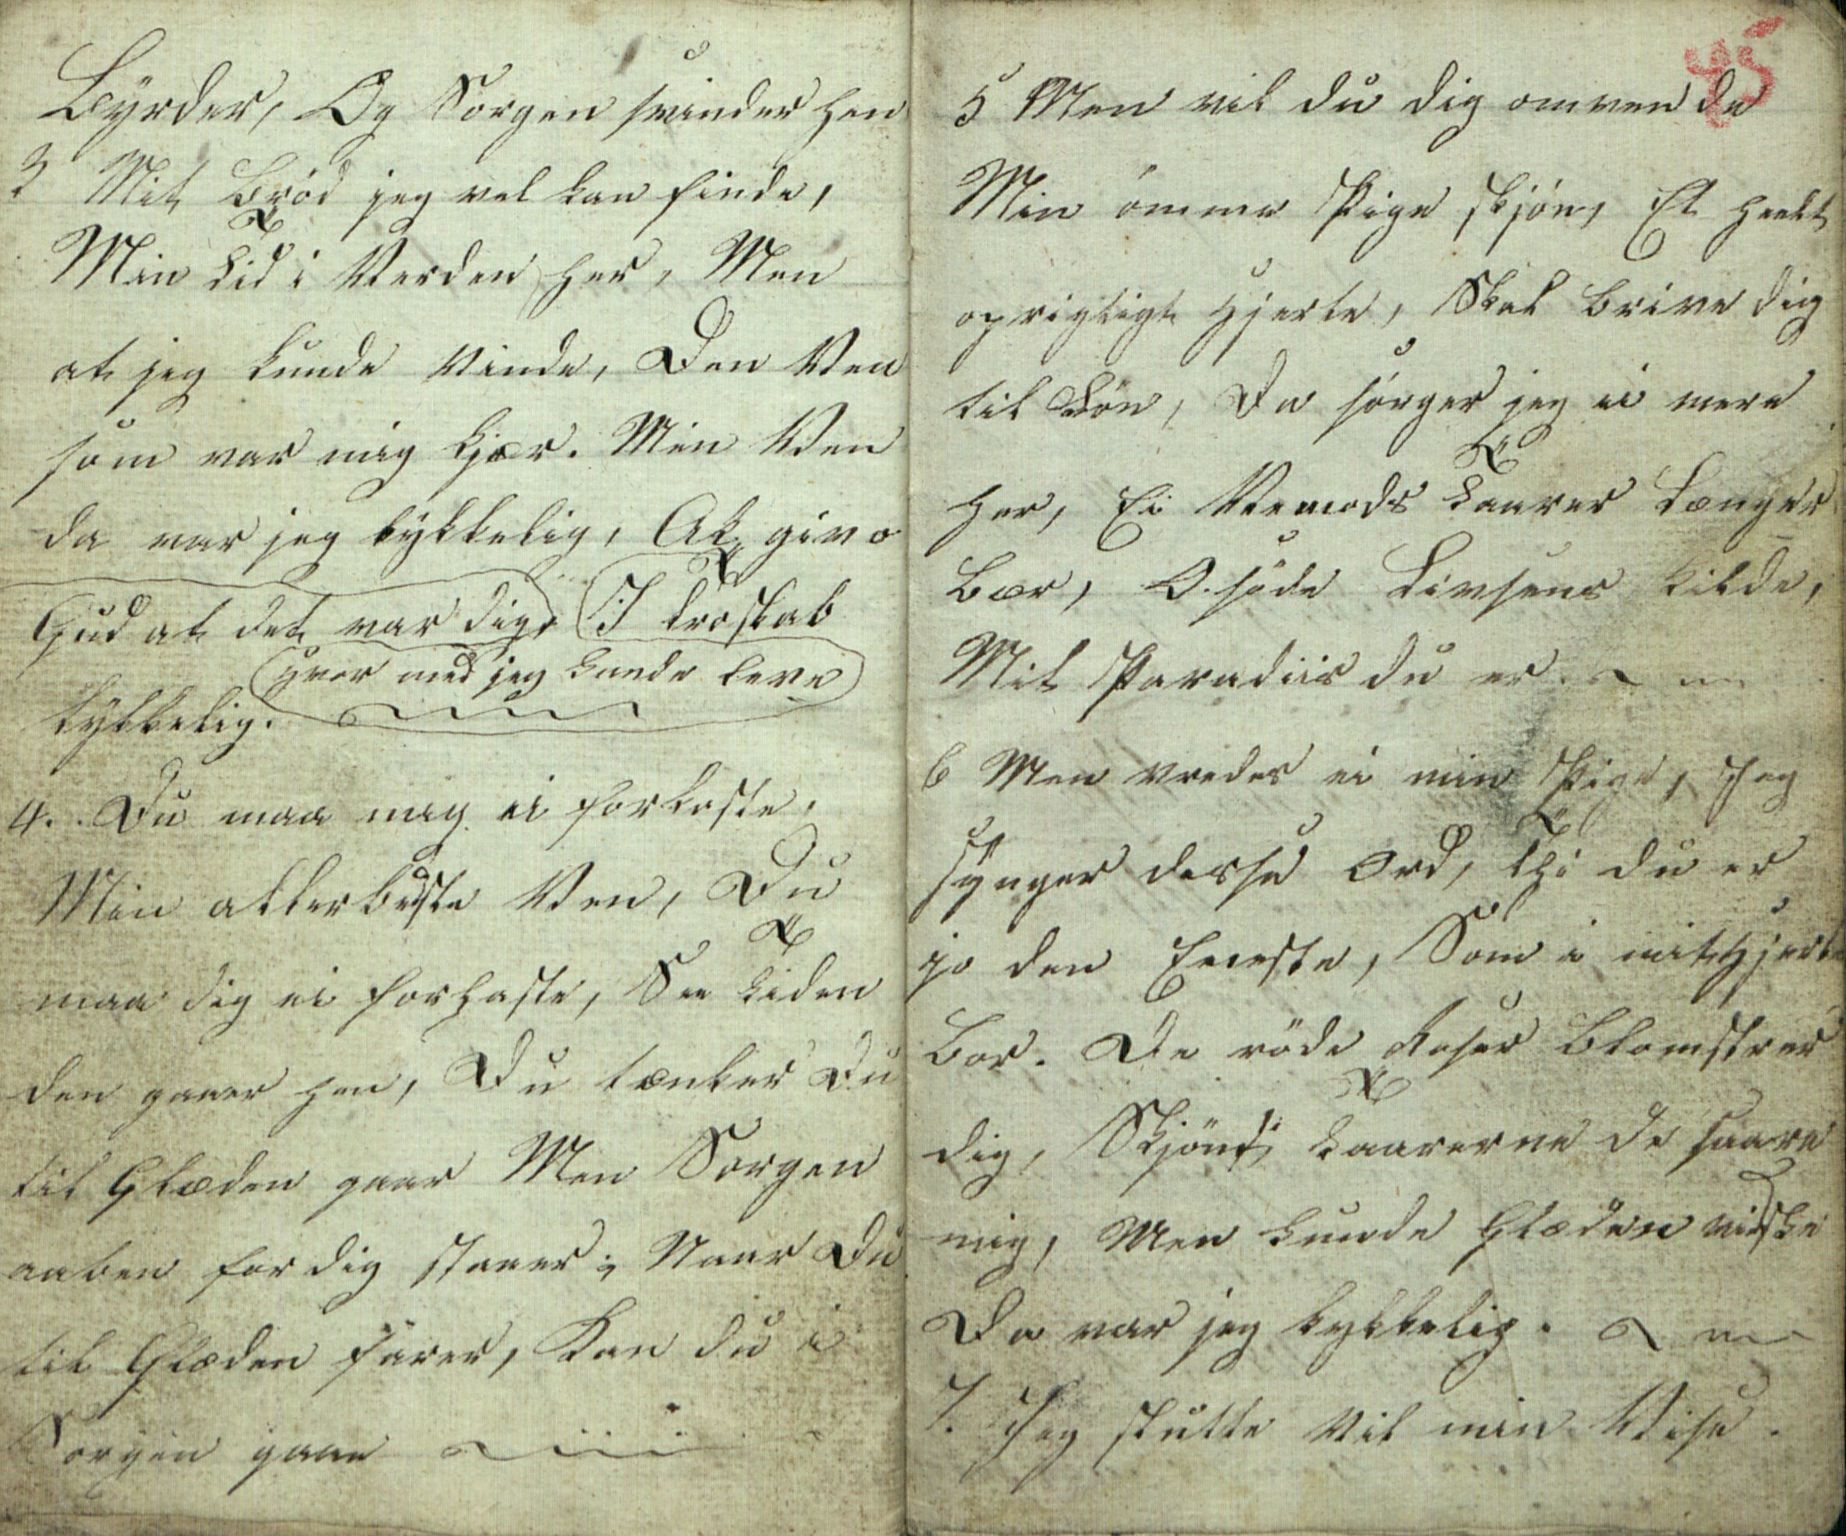 Byrder, Og Sorgen svinder hen
3 Mit Brød jeg vel kan finde,
Min Tid i Verden her, Men
at jeg kunde Vinde, Den Ven
som var mig kjær. Min Ven
da var jeg lykkelig, Ak give
Gud at det var dig, I troskab
hvor med jeg kunde leve
lykkelig.
4. Du maa mig ei forkaste,
Min allerbedste Ven, Du
maa dig ei forhaste, See Tiden
den gaaer hen, Du tænker Du
til Glæden gaar Men Sorgen
aaben for dig staaer; Naar Du
til Glæden farer, Kan du i
Sorgen gaae
45
5 Men vil du dig omvende
Min ömme Pige skjön, Et heelt
oprigtigt Hjerte, Skal blive dig
til Lön, Da sørger jeg ei mere
her, Ei Veemods Taarer Længer
Bær, O. søde Livsens Kilde,
Mit Paradiis du er.
6 Men vredes ei min Pige, Jeg
synger desse Ord, Thi du er
jo den Eneste, Som i mit Hjerte
Bor. De röde Roser Blomstrer
dig, Skjönt Taarerne de saare
mig, Men kunde Glæden
Da var jeg lykkelig.
7. Jeg slutte Vil min Vise.